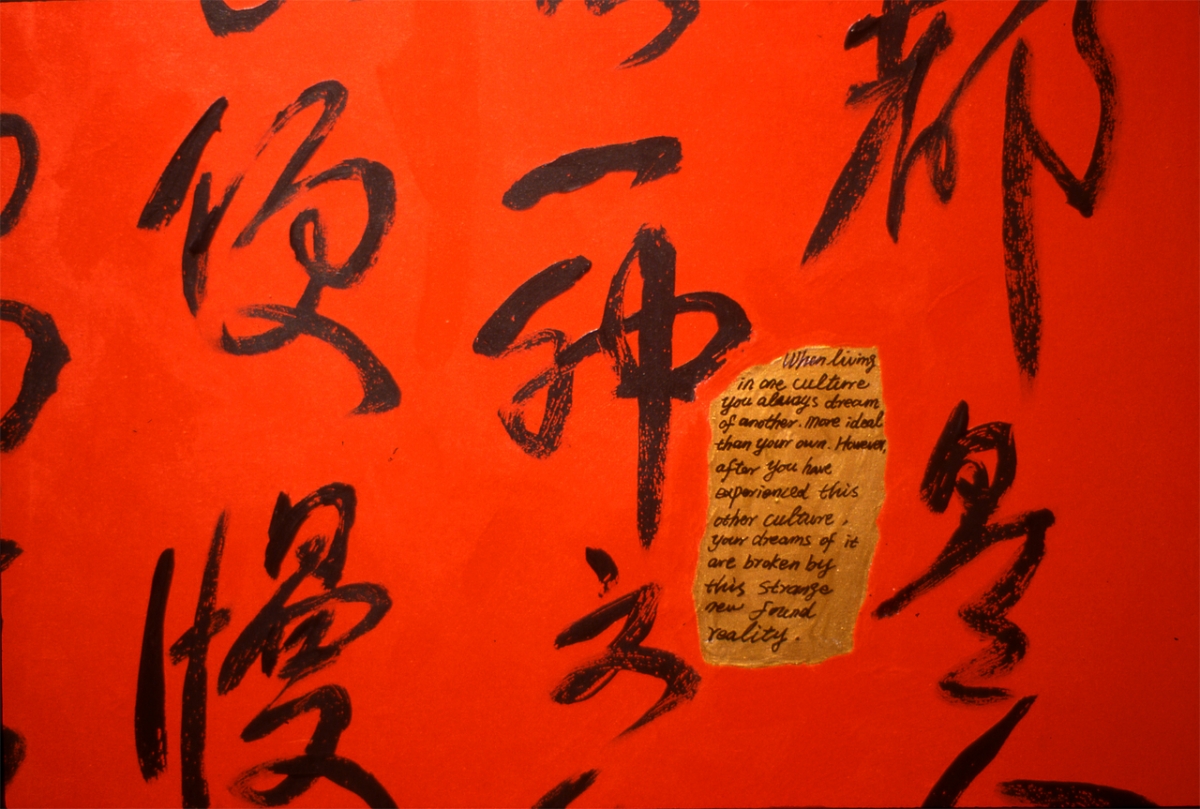 都是
一种文
便慢
When living
in one culture
you always dream
of another. More ideal
than your own. However,
after you have
experienced this
other culture,
your dreams of it
are broken by
this strange
new found
reality.